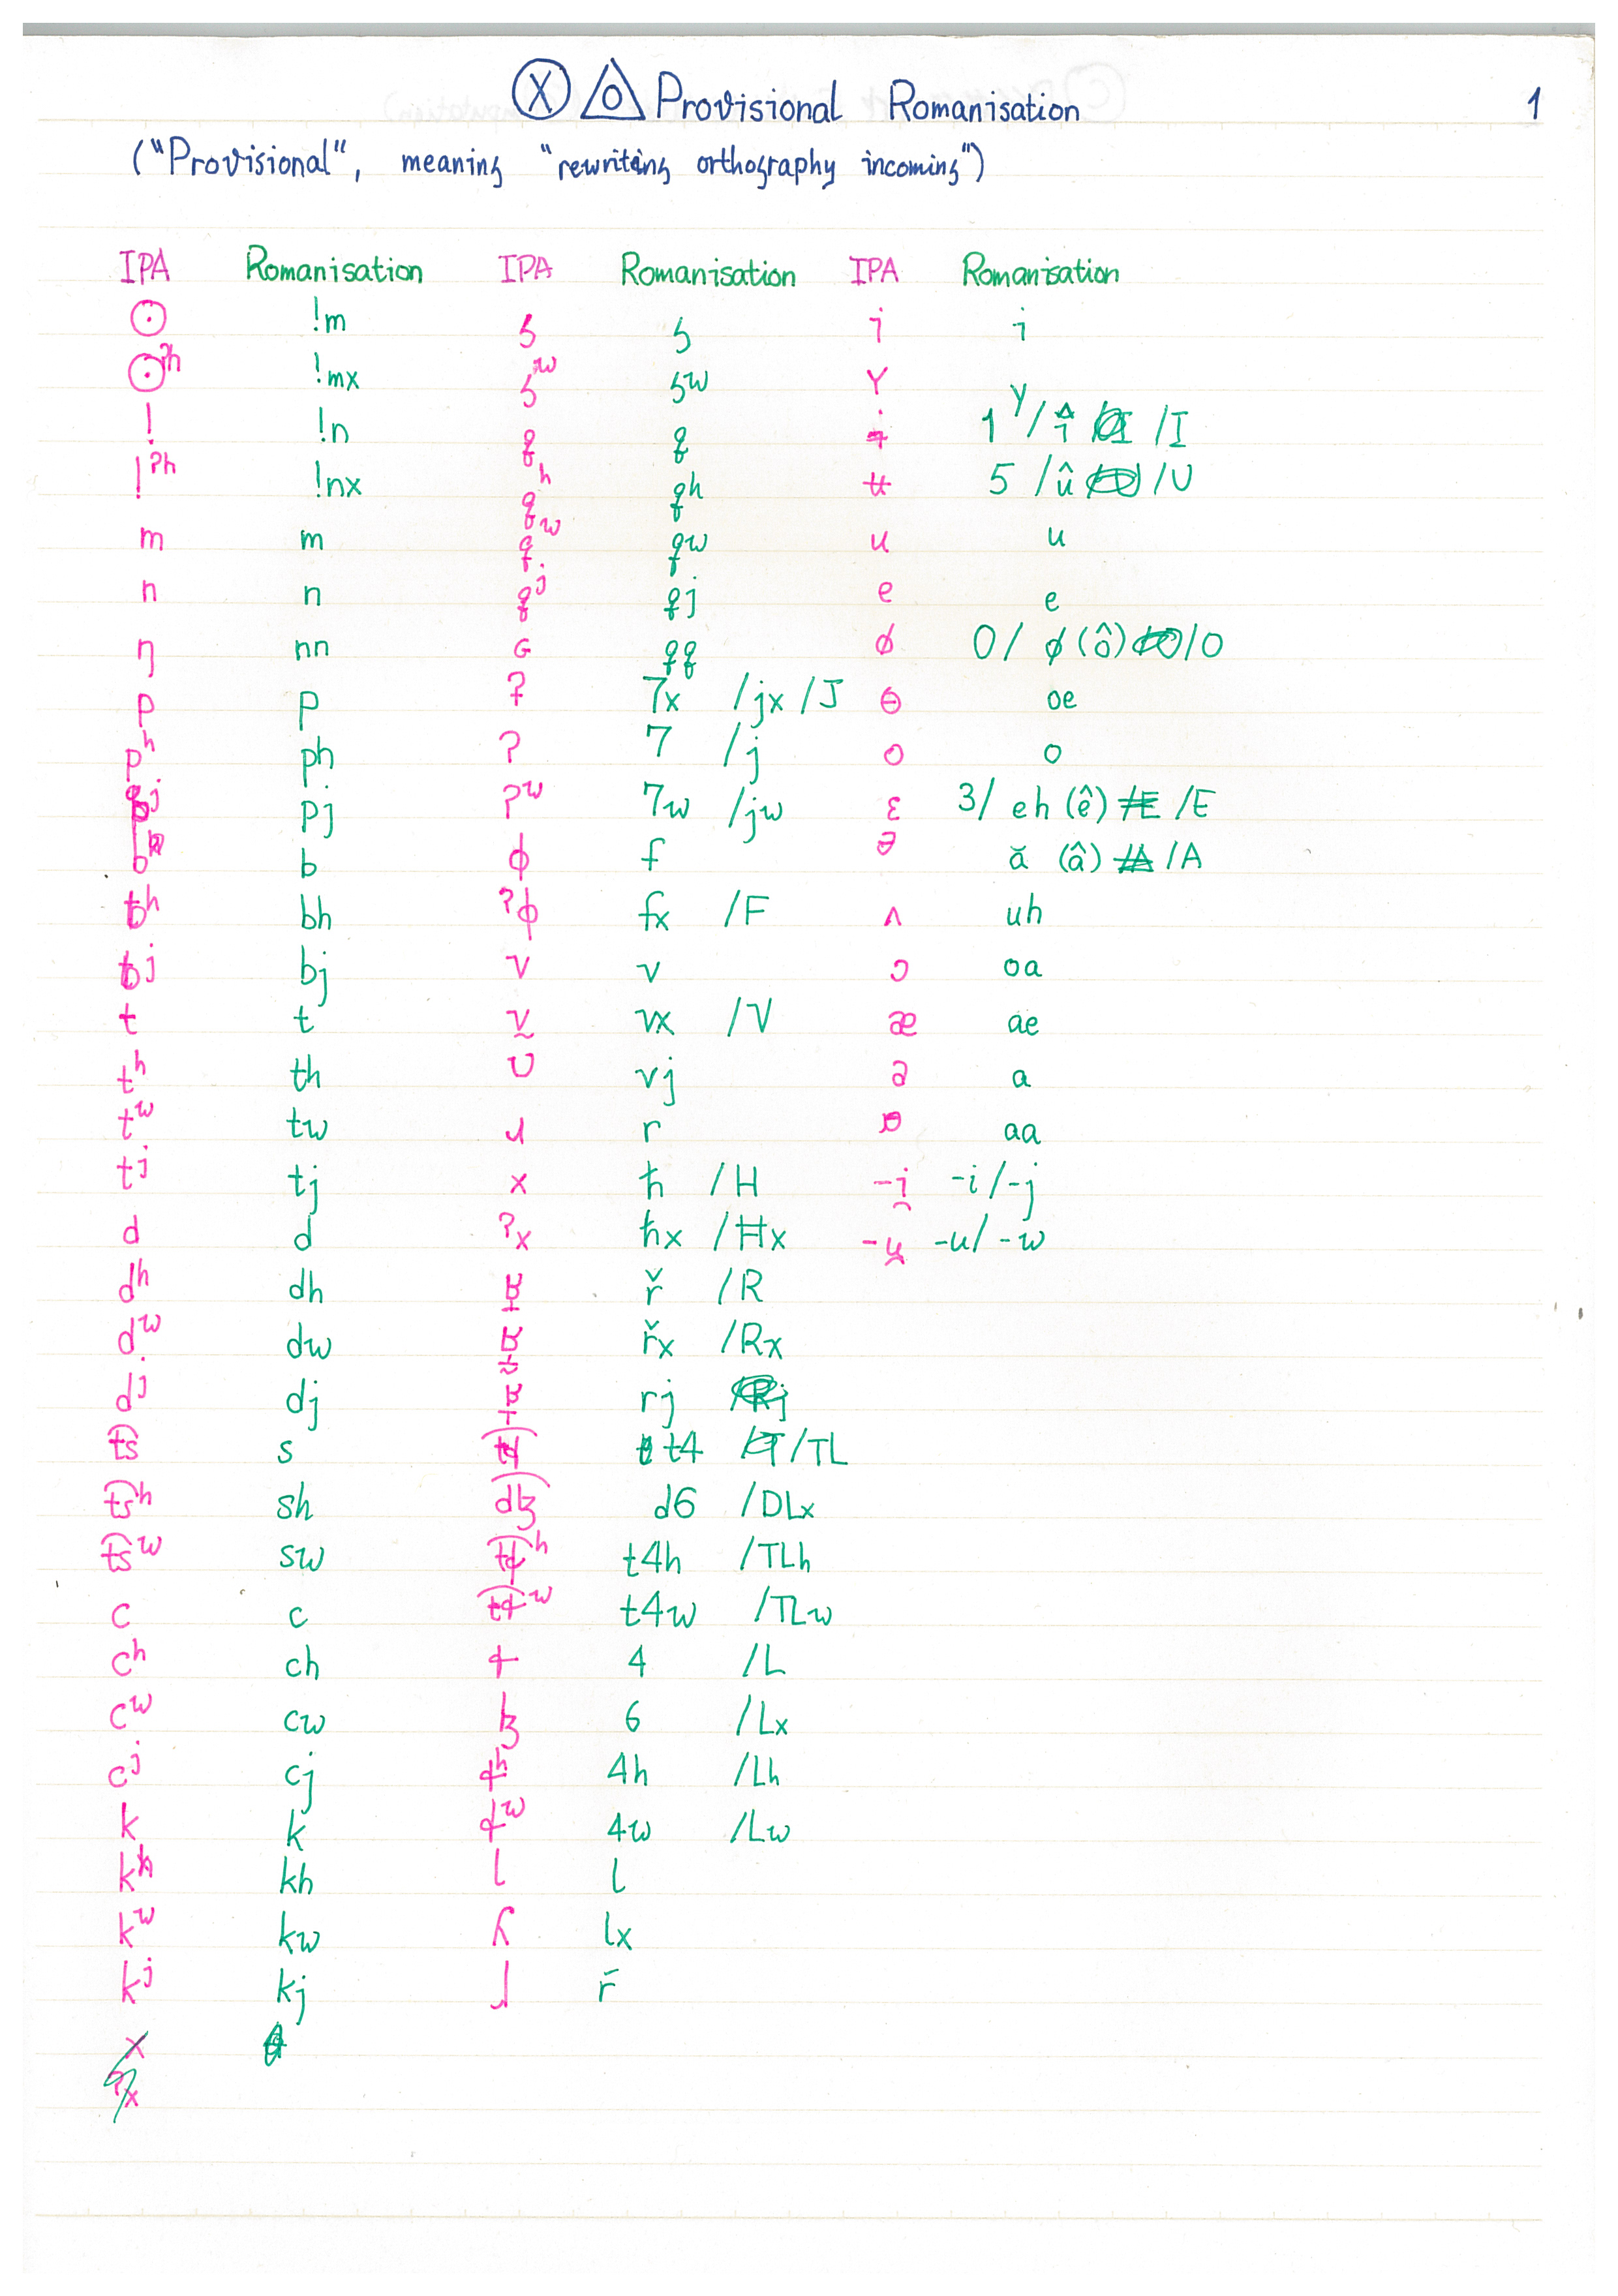 Ⓧ Provisional Romanisation 1
("Provisional", meaning "rewriting orthography incoming")
IPA Romanisation IPA Romanisation IPA Romanisation
ʘ !m g g i i
ʘˀʰ !mx gʷ gw ʏ y
! !n q q ɨ 1 / î /I
!ˀʰ !nx qʰ qh ʉ 5 / û /U
m m qʷ qw u u
n n qʲ qj e e
ŋ nn ɢ qq ø 0 / ø (ô) /O
p p ʡ 7x /jx /J ɵ oe
pʰ ph ʔ 7 /j o o
pʲ pj ʔʷ 7w /jw ɛ 3/ eh (ê) /E
b b ɸ f ə ă (â) /A
bʰ bh ˀɸ fx /F ʌ uh
bʲ bj v v ɔ oa
t t v̰ vx /V æ ae
tʰ th ʋ vj a a
tʷ tw ɹ r ɒ aa
tʲ tj x ħ /H -i̯ -i/-j
d d ˀx ħx /Hx -u̯ -u/-w
dʰ dh ʁ̠ ř /R
dʷ dw ʁ̰ řx /Rx
dʲ dj ʁ̞ rj
t͡s s t͡ɬ t4 /TL
t͡sʰ sh d͡ɮ d6 /DLx
t͡sʷ sw t͡ɬʰ t4h /TLh
c c t͡ɬʷ t4w /TLw
cʰ ch ɬ 4 /L
cʷ cw ɮ 6 /Lx
cʲ cj ɬʰ 4h /Lh
k k ɬʷ 4w /Lw
kʰ kh l l
kʷ kw ʎ lx
kʲ kj ɺ r̆